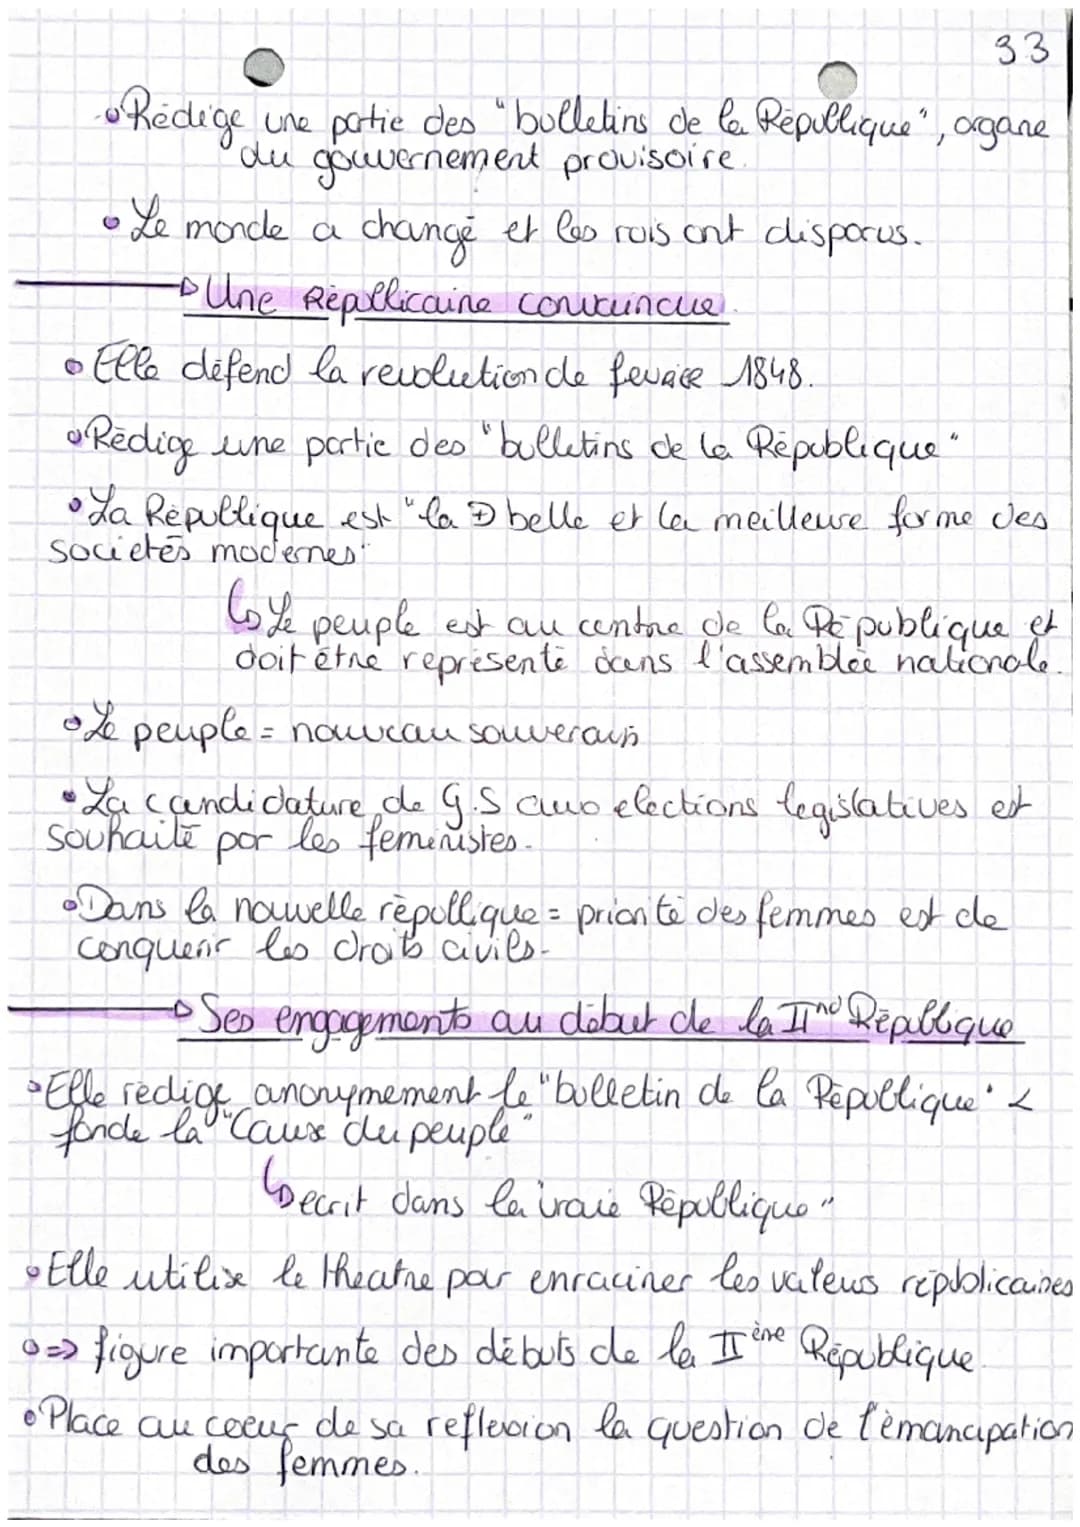 33
Rédige une partie des "bulletins de la République", organe
du gouvernement provisoire.
Le monde a changé et les rois ont disparus.
Une Républicaine convaincue.
Elle défend la revolution de fevrier 1848.
Rédige une partie des "bulletins de la République"
La République est "la + belle et la meilleure forme des
societés modernes"
Le peuple est au centre de la République et
doit être représenté dans l'assemblée nationale.
Le peuple = nouveau souverain
La candidature de G.S aux elections legislatives est
souhaité par les feministes.
Dans la nouvelle république = priorité des femmes est de
conquerir les droits civils.
Ses engagements au début de la IInd République
Elle rédige anonymement le "bulletin de la République" &
fonde la "Cause du peuple"
ecrit dans la vraie République"
Elle utilise le theatre pour enraciner les valeurs républicaines
=> figure importante des débuts de la IIène République.
Place au coeur de sa reflexion la question de l'émancipation
des femmes.